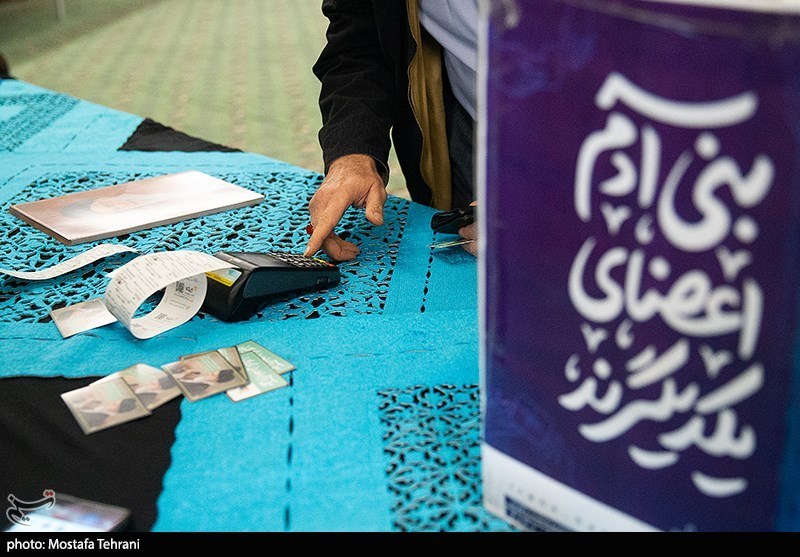 بنی آدم
اعضای
یکدیگرند
photo: Mostafa Tehrani